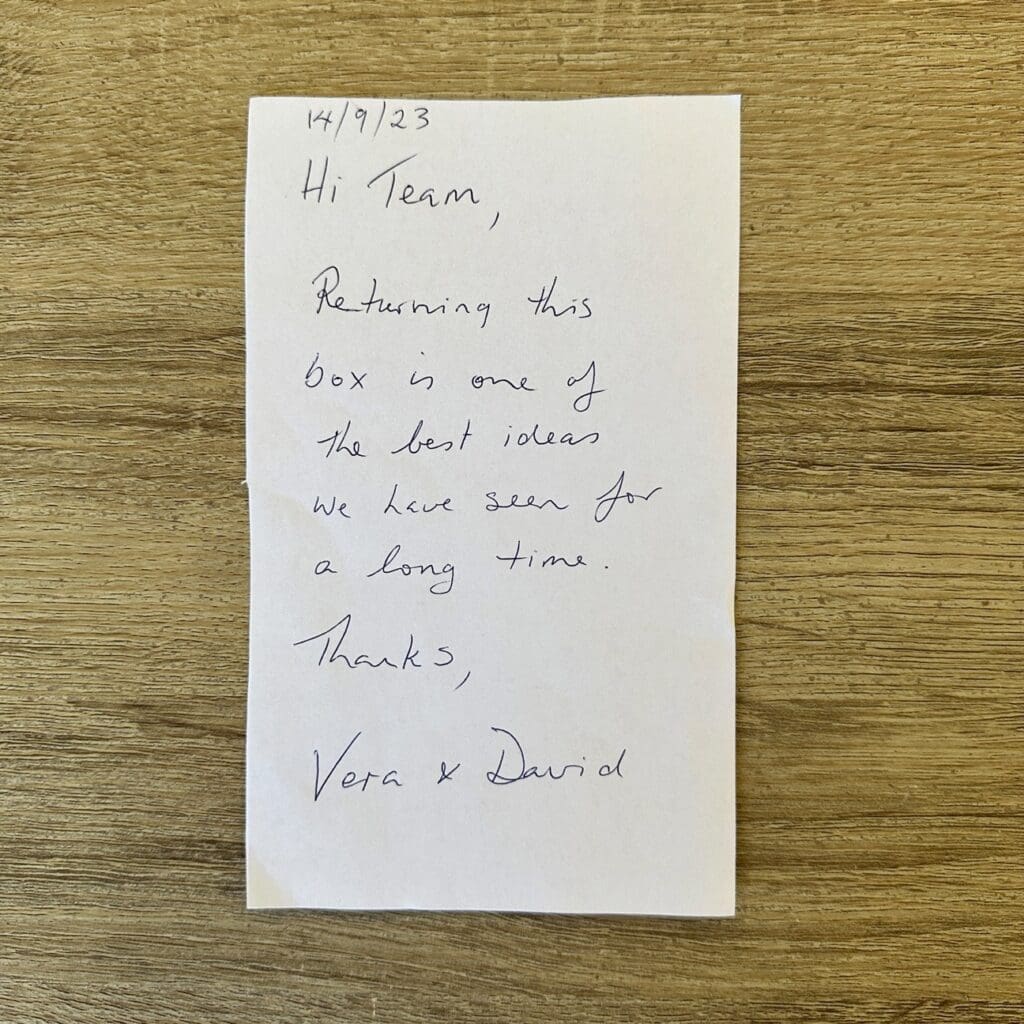 14/9/23
Hi Team,
Returning this
box is one of
the best ideas
we have seen for
a long time.
Thanks,
Vera & David